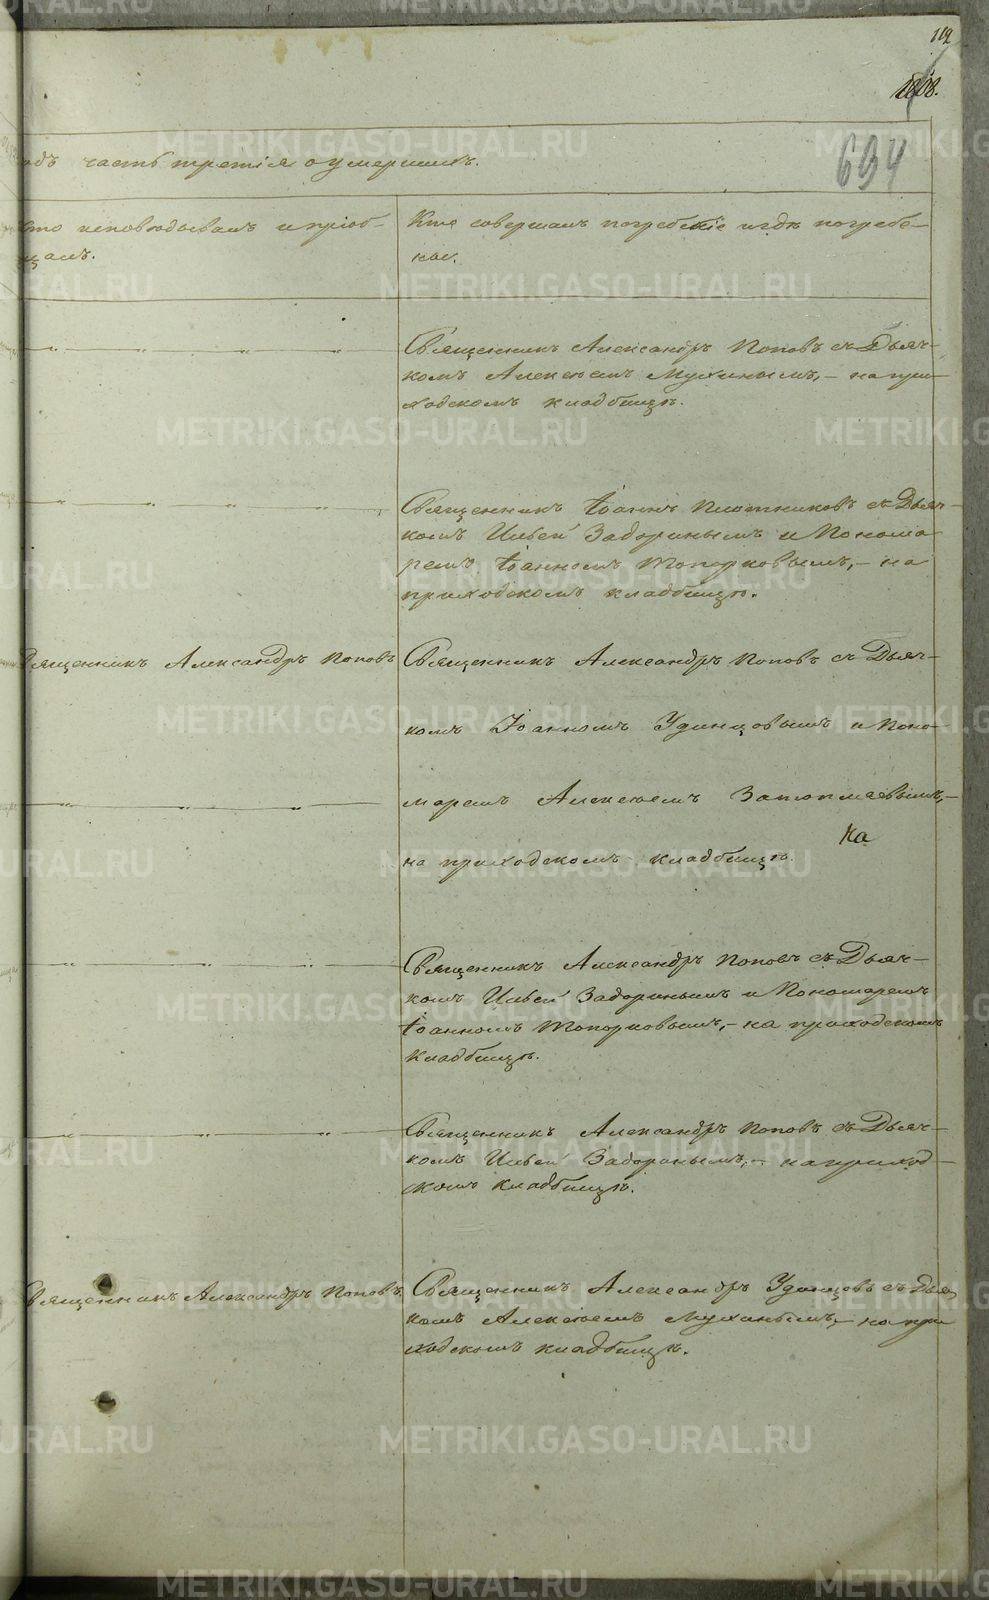 112
694
одъ часть третія о умершихъ.
то исповѣдывалъ и пріоб-
щалъ.
Кто совершалъ погребеніе и гдѣ погребе-
ны.
Священникъ Александръ Поповъ съ Дьяч-
комъ Алексѣемъ Мухинымъ, - на при-
ходскомъ кладбищѣ.
Священникъ Іоаннъ Плотниковъ съ Дьяч-
комъ Ильей Задоринымъ и Понома-
ремъ Іоанномъ Топорковымъ, - на
приходскомъ кладбищѣ.
Священникъ Александръ Поповъ
Священникъ Александръ Поповъ съ Дьяч-
комъ Іоанномъ Удинцовымъ и Поно-
маремъ Алексѣемъ Затопляевымъ, -
на
на приходскомъ кладбищѣ.
Священникъ Александръ Поповъ съ Дьяч-
комъ Ильей Задоринымъ и Пономаремъ
Іоанномъ Топорковымъ, - на приходскомъ
кладбищѣ.
Священникъ Александръ Поповъ съ Дьяч-
комъ Ильей Задоринымъ, - на приход-
скомъ кладбищѣ.
Священникъ Александръ Поповъ
Священникъ Александръ Удинцовъ съ Дьяч
комъ Алексѣемъ Мухинымъ, - на при
ходскомъ кладбищѣ.
METRIKI.GASO-URAL.RU